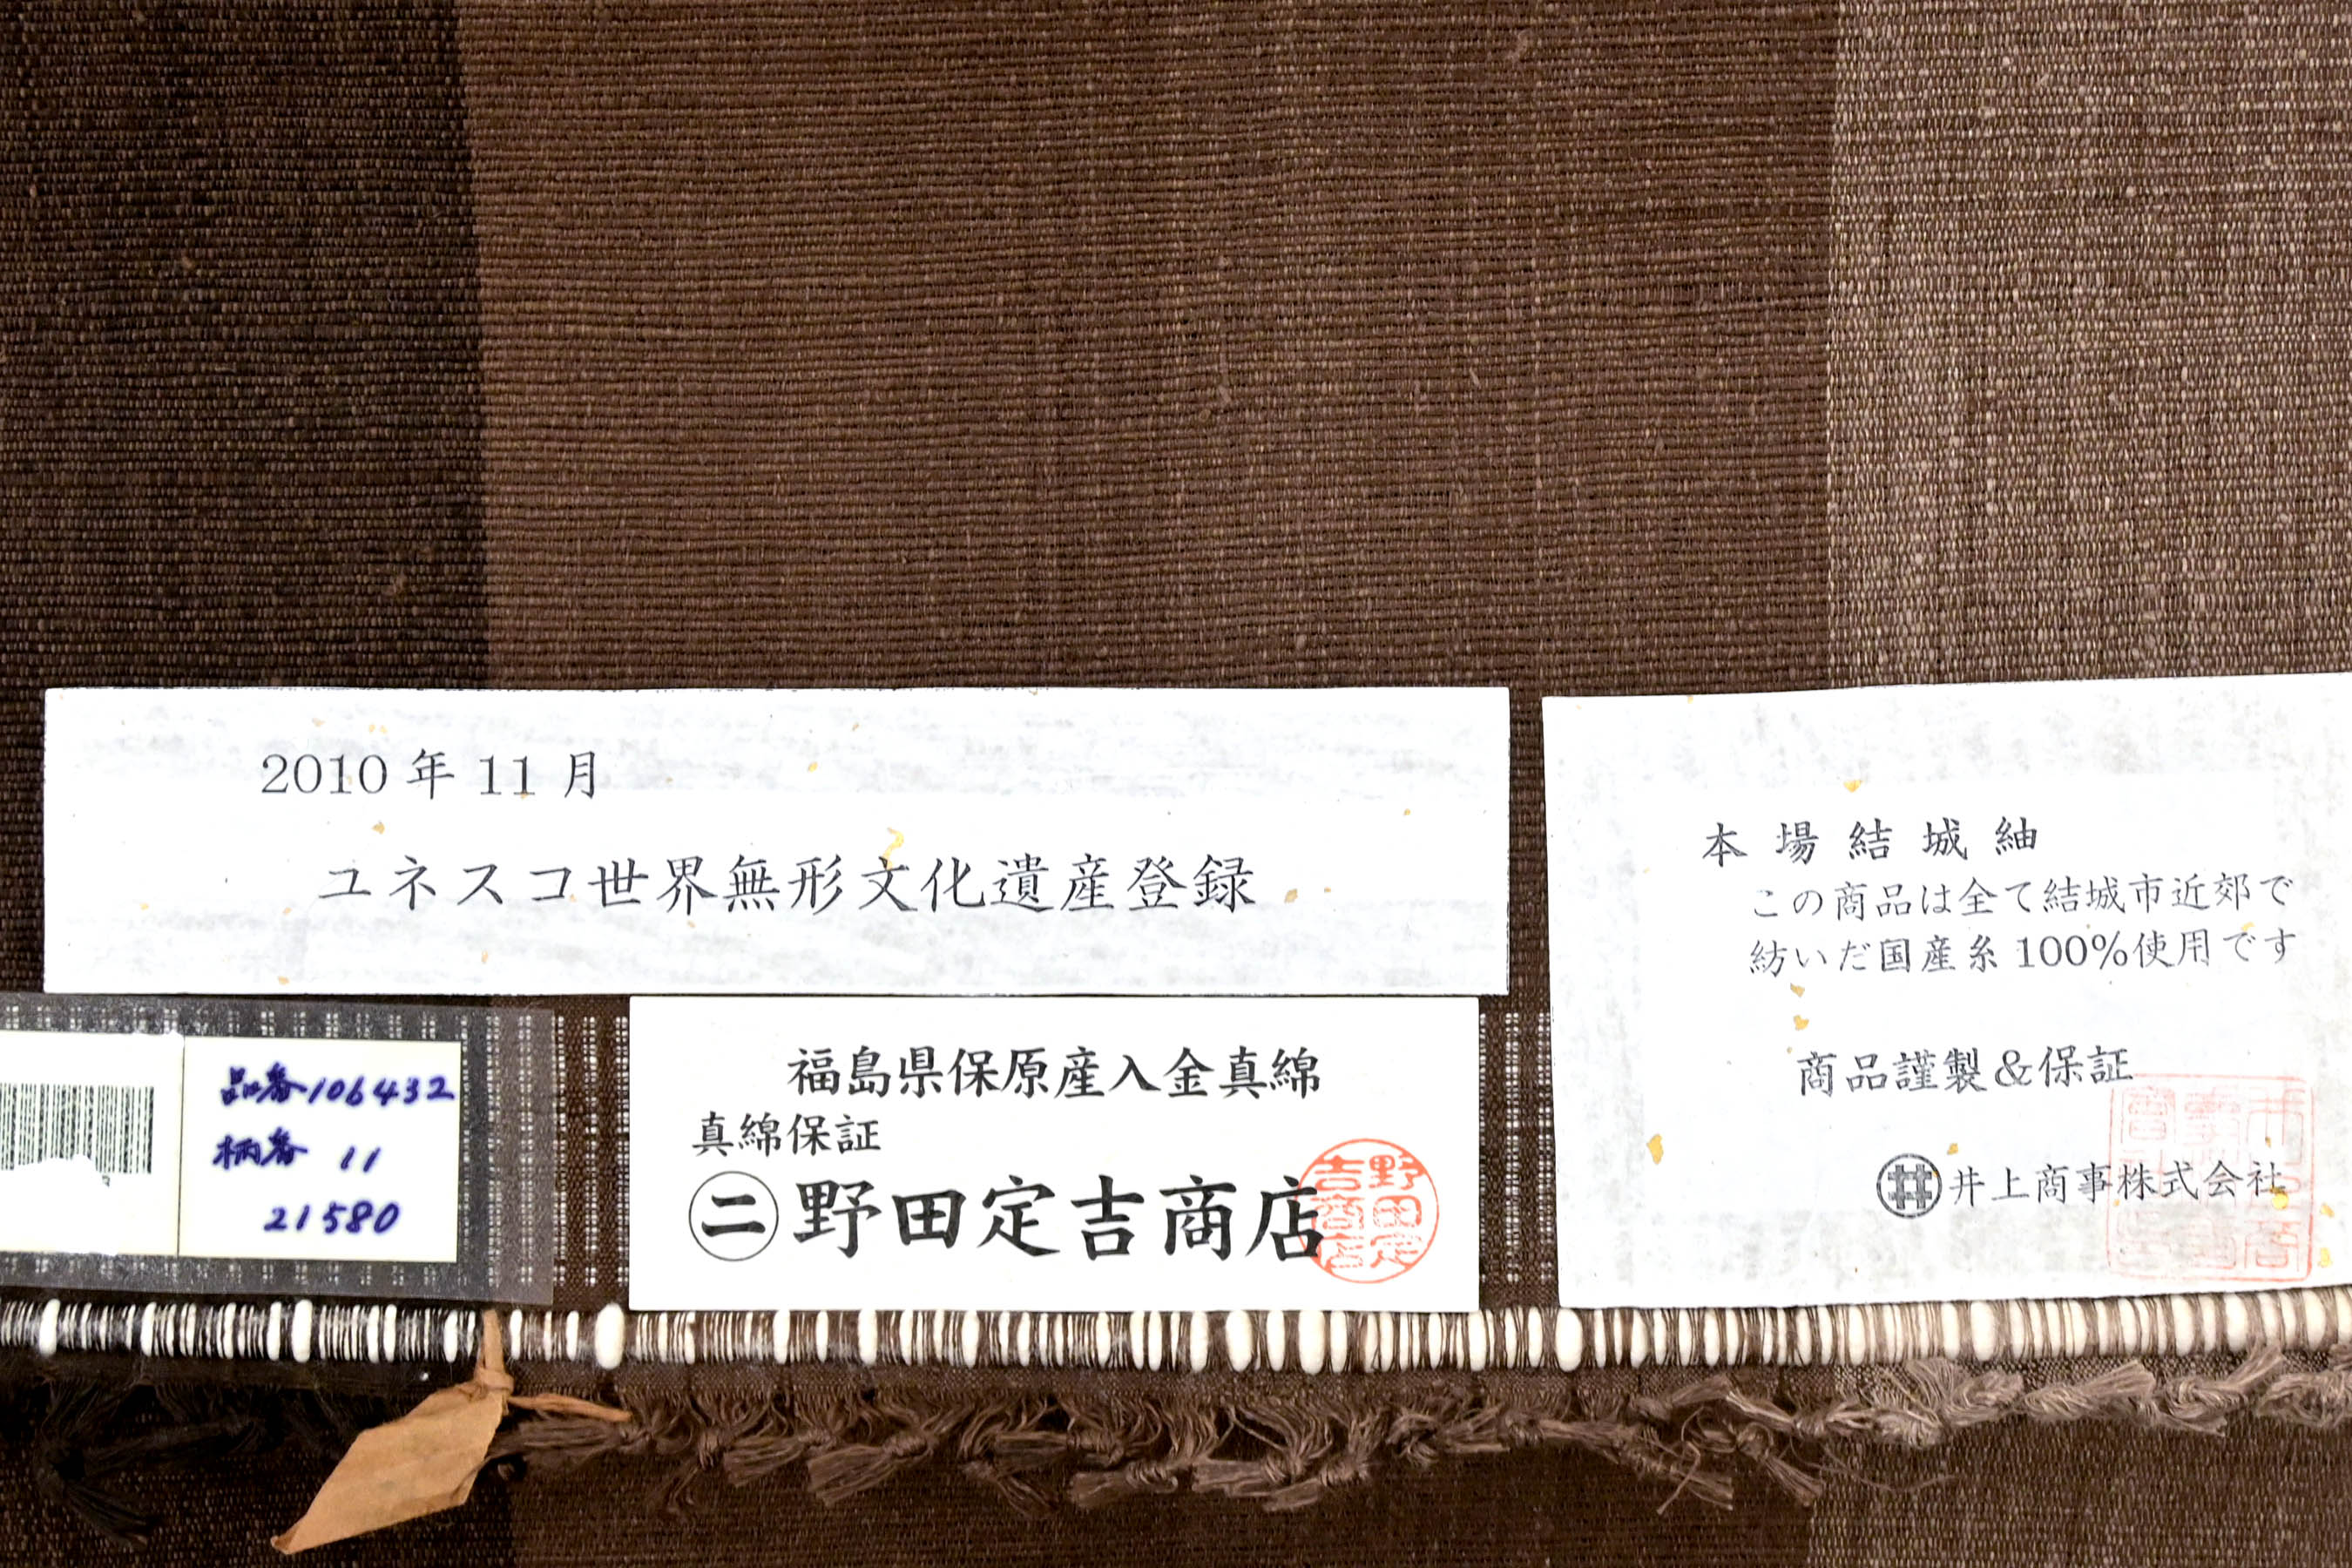 2010年11月
ユネスコ世界無形文化遺産登録
本場結城紬
この商品は全て結城市近郊で
紡いだ国産糸100%使用です
商品謹製&保証
井上商事株式会社
品番106432
柄番 11
21580
福島県保原産入金真綿
真綿保証
㊁野田定吉商店
野田定吉商店